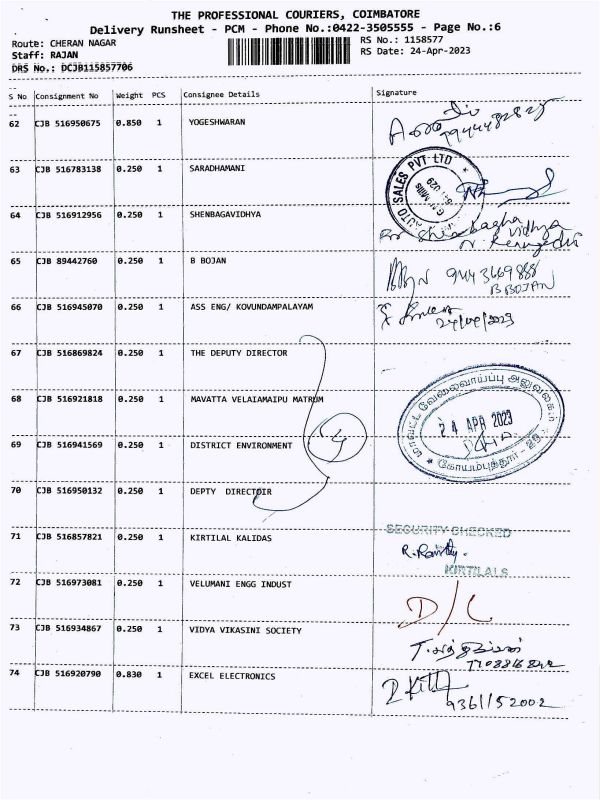 THE PROFESSIONAL COURIERS, COIMBATORE
Delivery Runsheet - PCM - Phone No.:0422-3505555 - Page No.:6
Route: CHERAN NAGAR
RS No.: 1158577
Staff: RAJAN
RS Date: 24-Apr-2023
DRS No.: DCJB115857706
S No Consignment No Weight PCS Consignee Details Signature
62 CJB 516950675 0.850 1 YOGESHWARAN
63 CJB 516783138 0.250 1 SARADHAMANI
AUTO SALES PVT LTD
64 CJB 516912956 0.250 1 SHENBAGAVIDHYA
Shenbagha Vidhya
65 CJB 89442760 0.250 1 B BOJAN
9443669888
B BOJAN
66 CJB 516945070 0.250 1 ASS ENG/ KOVUNDAMPALAYAM
24/04/2023
67 CJB 516869824 0.250 1 THE DEPUTY DIRECTOR
68 CJB 516921818 0.250 1 MAVATTA VELAIAMAIPU MATRUM
மாவட்ட வேலைவாய்ப்பு அலுவலகம்
24 APR 2023
கோயம்புத்தூர் - 29
69 CJB 516941569 0.250 1 DISTRICT ENVIRONMENT
70 CJB 516950132 0.250 1 DEPTY DIRECTOIR
71 CJB 516857821 0.250 1 KIRTILAL KALIDAS
SECURITY CHECKED
KIRTILALS
72 CJB 516973081 0.250 1 VELUMANI ENGG INDUST
D/L
73 CJB 516934867 0.250 1 VIDYA VIKASINI SOCIETY
74 CJB 516920790 0.830 1 EXCEL ELECTRONICS
9361152002